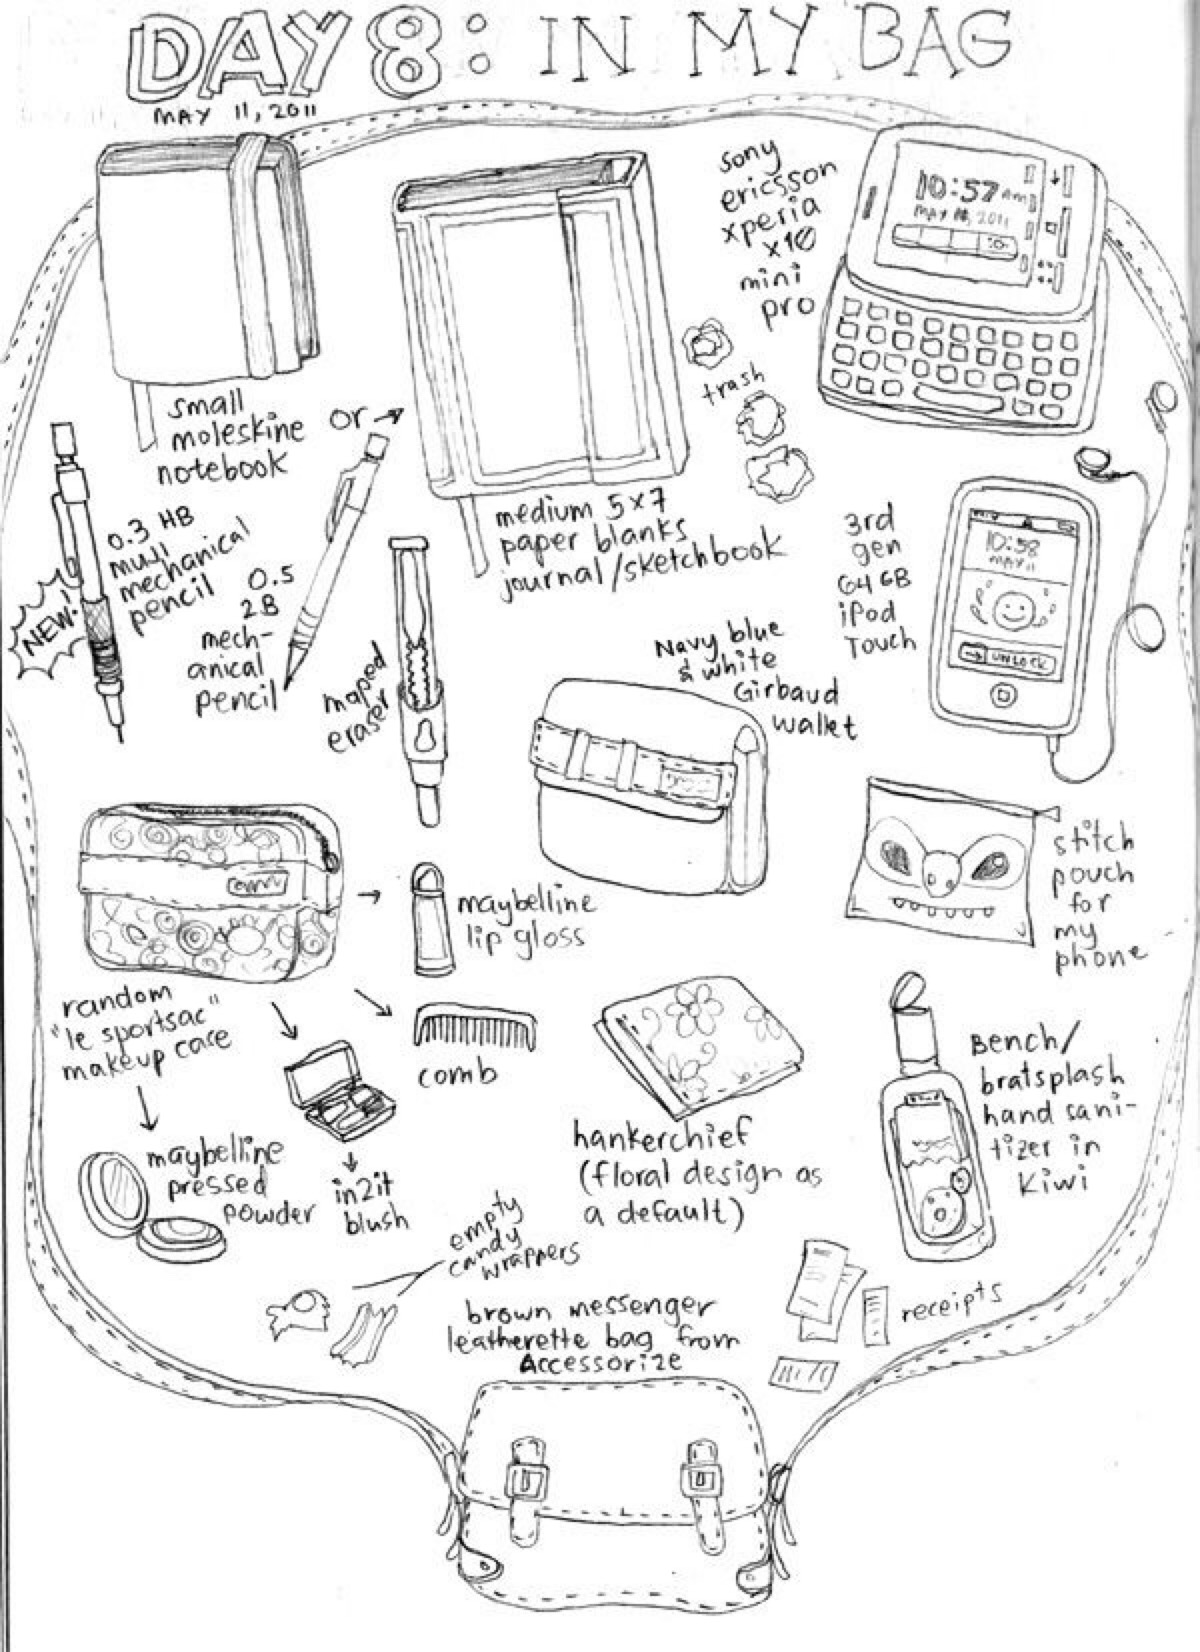 DAY 8: IN MY BAG
MAY 11, 2011
small
moleskine
notebook
or
medium 5x7
paper blanks
journal/sketchbook
sony
ericsson
xperia
x10
mini
pro
10:57 AM
MAY 11, 2011
trash
NEW!
0.3 HB
muji
mechanical
pencil
0.5
2B
mech-
anical
pencil
maped
eraser
Navy blue
& white
Girbaud
wallet
3rd
gen
64 GB
iPod
Touch
10:58
MAY 11
UNLOCK
stitch
pouch
for
my
phone
random
"le sportsac"
makeup case
maybelline
lip gloss
comb
in2it
blush
maybelline
pressed
powder
hankerchief
(floral design as
a default)
Bench/
bratsplash
hand sani-
tizer in
kiwi
empty
candy
wrappers
receipts
brown messenger
leatherette bag from
Accessorize